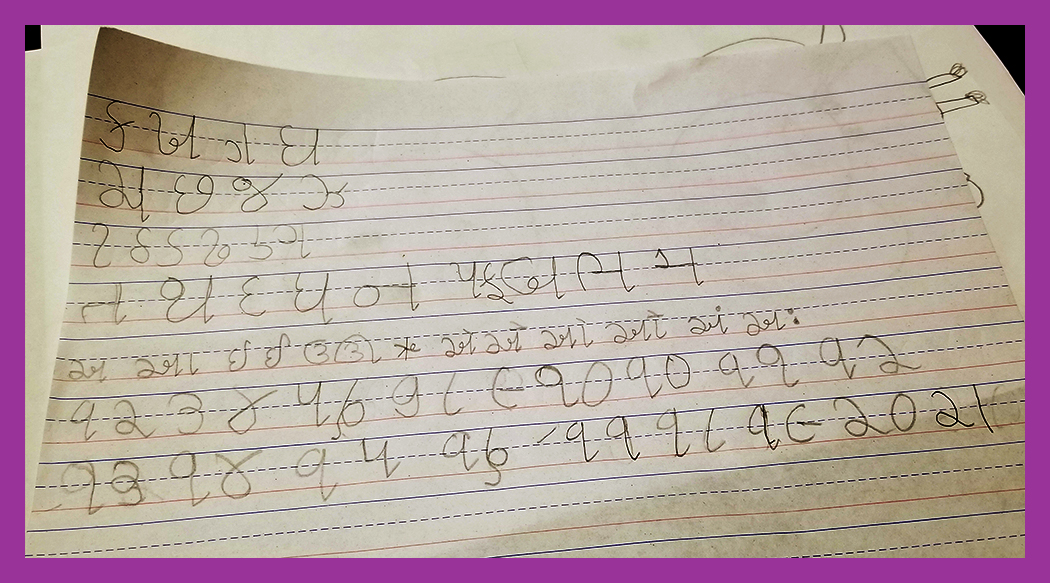 ક ખ ગ ઘ
ચ છ જ ઝ
ટ ઠ ડ ઢ ણ
ત થ દ ધ ન પ ફ બ ભ મ
અ આ ઇ ઈ ઉ ઊ * એ ઐ ઓ ઔ અં અઃ
૧ ૨ ૩ ૪ ૫ ૬ ૭ ૮ ૯ ૧૦ ૧૦ ૧૧ ૧૨
૧૩ ૧૪ ૧૫ ૧૬ ૧૧ ૧૮ ૧૯ ૨૦ ૨૧